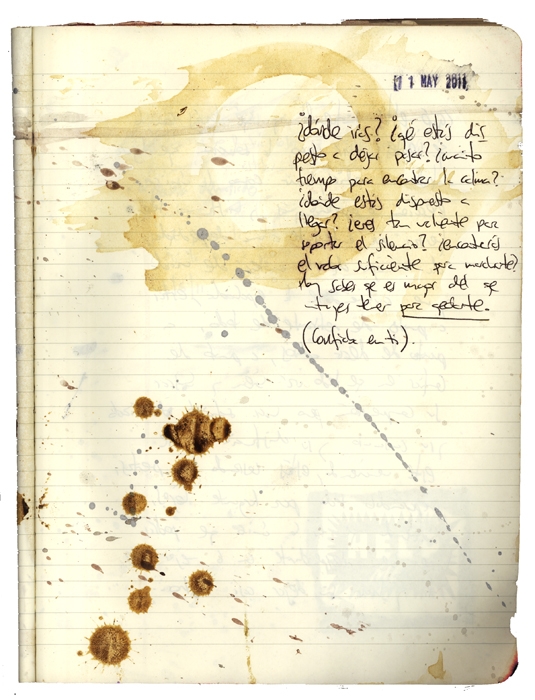 11 MAY 2011
¿dónde vas? ¿qué estás dis
puesto a dejar pasar? ¿cuánto
tiempo para encontrar la calma?
¿dónde estás dispuesto a
llegar? ¿eres tan valiente para
soportar el silencio? ¿encontrarás
el valor suficiente para marcharte?
hoy sabes que es mayor del que
intuyes tener para quedarte.
(Confía en ti).